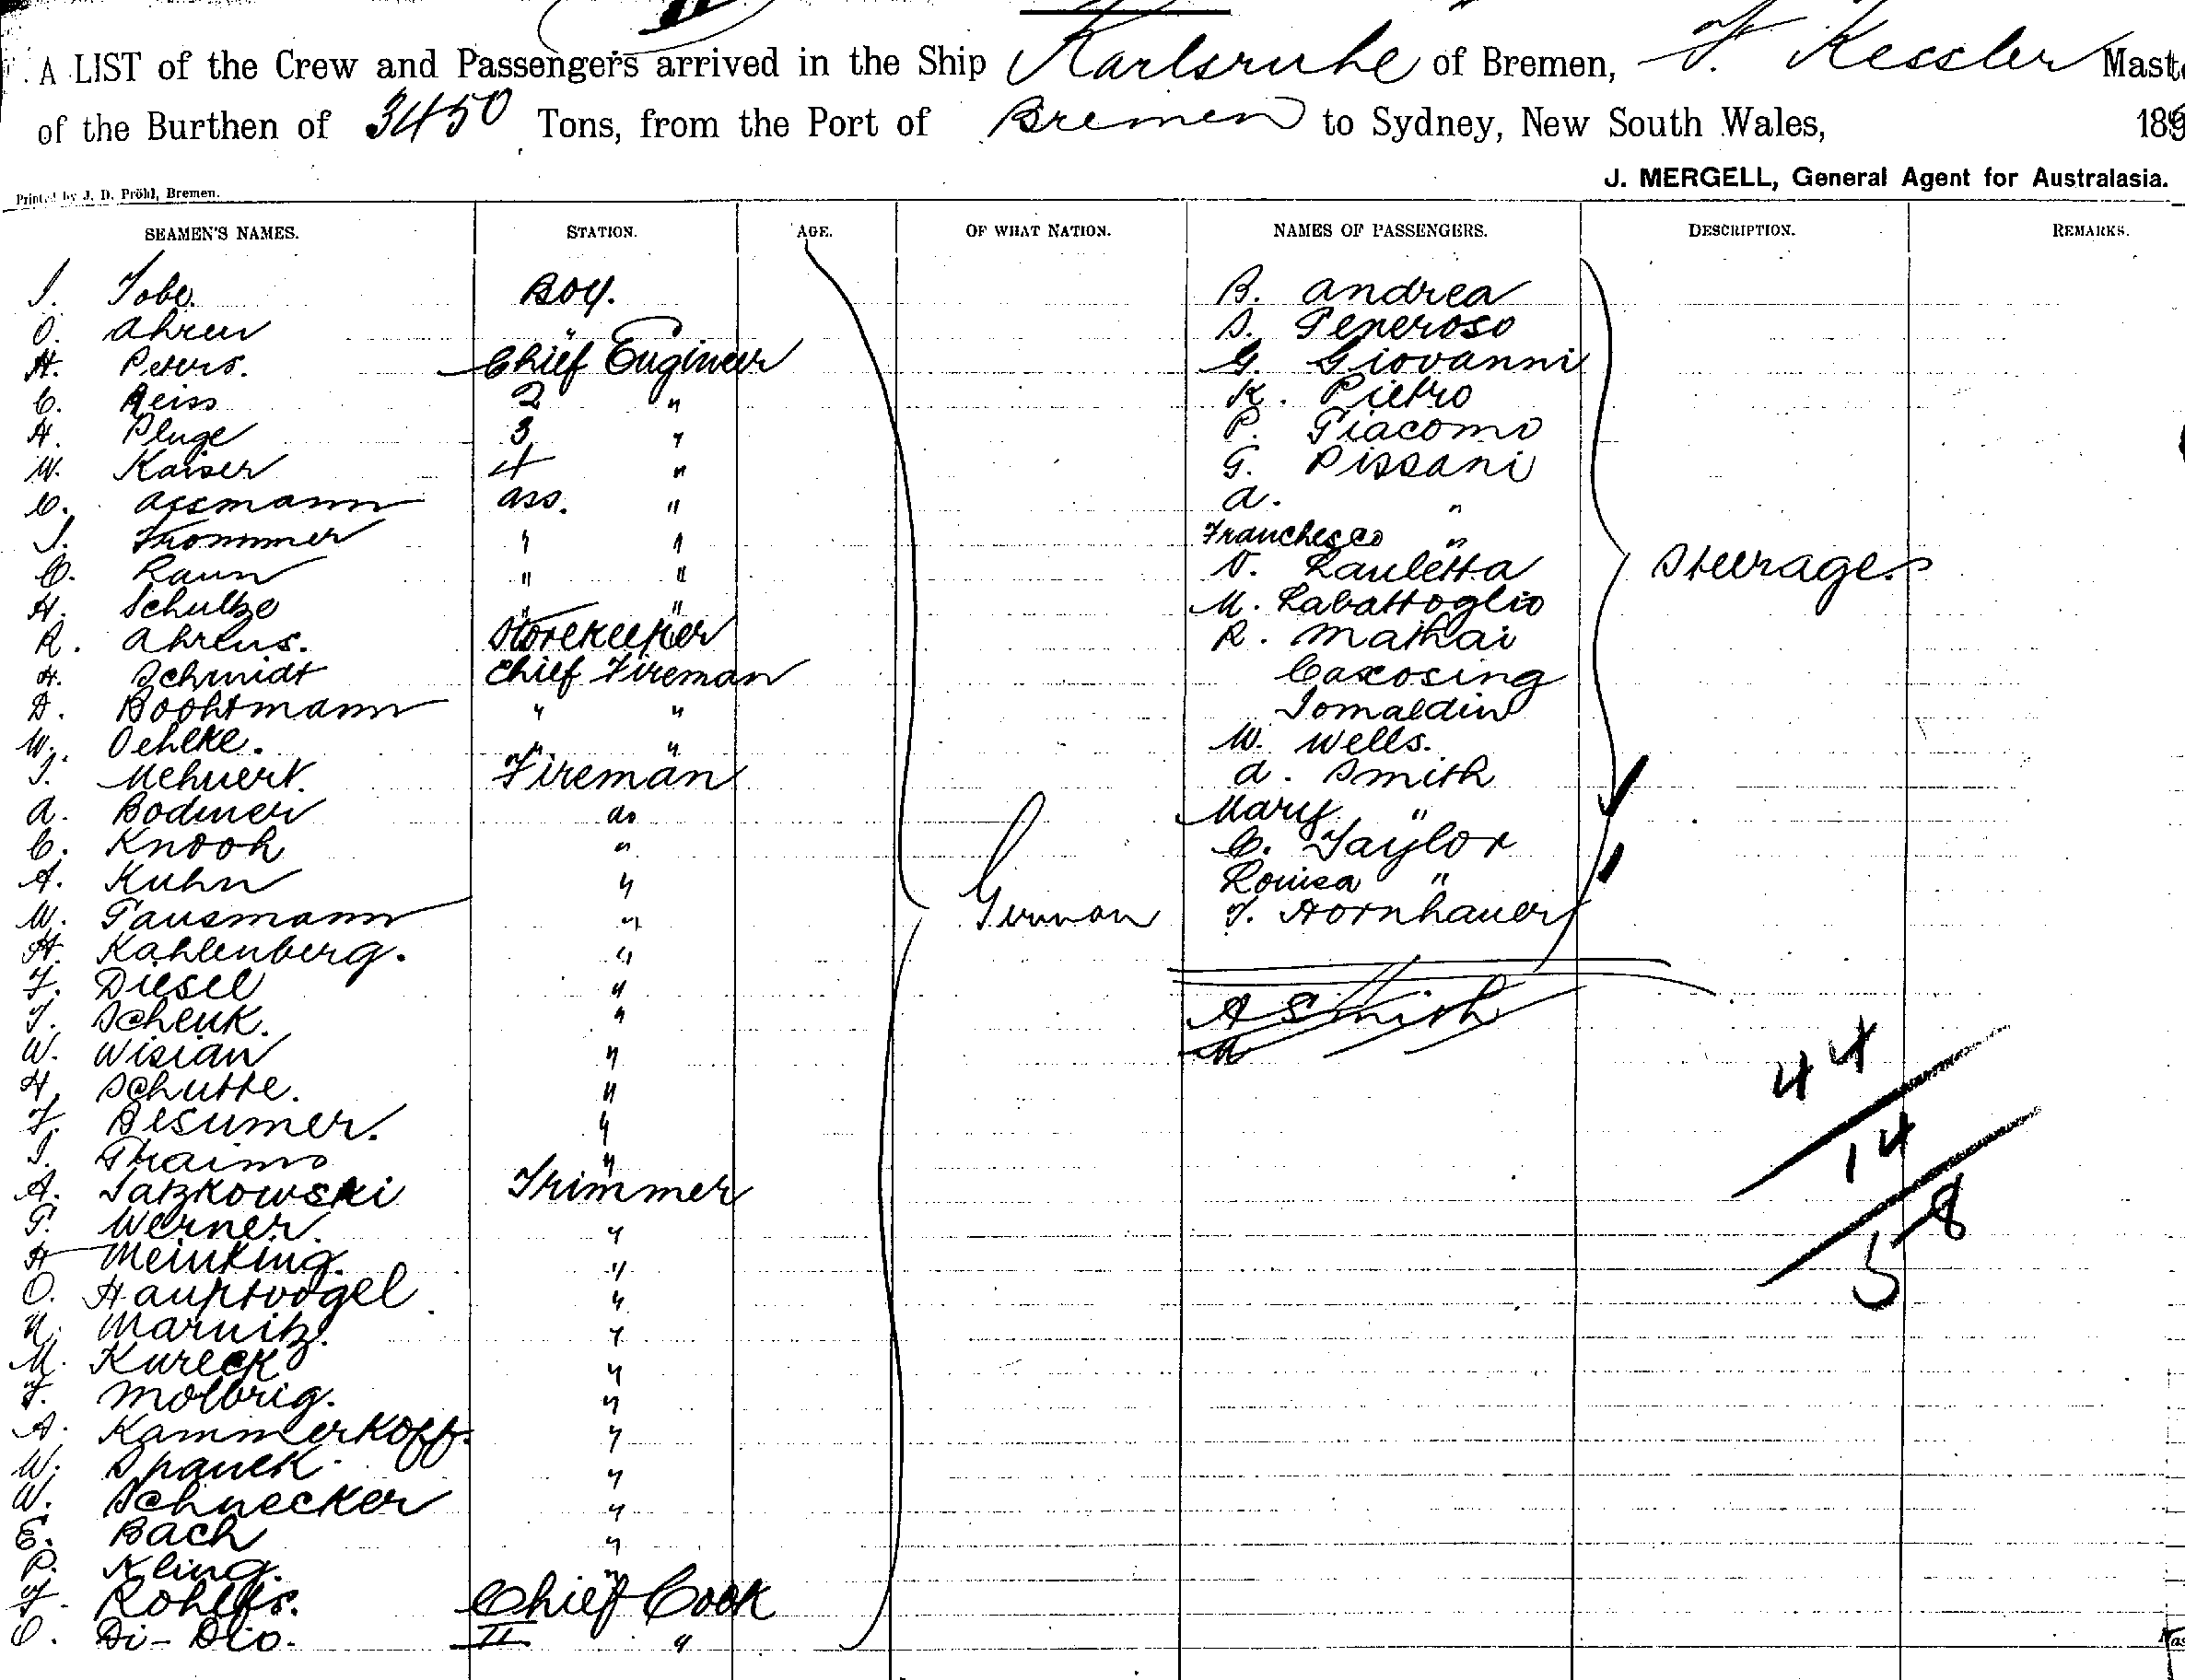 A LIST of the Crew and Passengers arrived in the Ship Karlsruhe of Bremen, F. Kessler
of the Burthen of 3450 Tons, from the Port of Bremen to Sydney, New South Wales, 189
J. MERGELL, General Agent for Australasia.
Printed by J. D. Pröhl, Bremen.
SEAMEN'S NAMES. STATION. AGE. OF WHAT NATION. NAMES OF PASSENGERS. DESCRIPTION. REMARKS.
Boy. B. Andrea
O. Ahren " S. Generoso
H. Peters. Chief Engineer G. Giovanni
C. Reiss 2 " K. Pietro
H. Pluge 3 " P. Giacomo
W. Kaiser 4 " G. Pissani
C. Assmann Ass. " A. "
J. Trommer " " Franchesco "
C. Raun " " V. Lauletta Steerage.
H. Schultze " " M. Labattoglio
R. Ahrens. Storekeeper R. Mathai
H. Schmidt Chief Fireman Caxosing
D. Boohtmann " " Jomaldin
W. Oehlke. " " W. Wells.
J. Mehnert. Fireman A. Smith
A. Bodmer do Mary "
C. Knooh " C. Taylor
A. Kuhn " Louisa "
W. Gausmann " German J. Hornhauer
H. Kahlenberg. "
F. Diesel "
J. Schenk. " A Smith
W. Wisian " M
H. Schutte. " 44
F. Besumer. " 14
J. " 58
A. Jatzkowski Trimmer
G. Werner. "
H Meinking. "
O. Hauptvogel "
N. Marnitz. "
M. Kureck "
F. Molbrig. "
A. Kammerkoff. "
W. Spanek. "
W. Schnecker "
E. Bach "
P. Kling. "
F. Rohlfs. Chief Cook
O. Di-Dio. II "